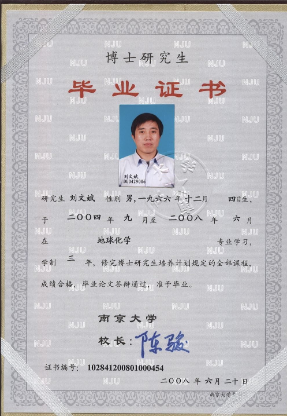 博士研究生
毕业证书
刘文斌
研究生 刘文斌 性别 男,一九六六年十二月 四日生,
于 二〇〇四 年 九 月至 二〇〇八 年 六 月
在 地球化学 专业学习,
学制 三 年,修完博士研究生培养计划规定的全部课程,
成绩合格,毕业论文答辩通过,准予毕业。
南京大学
校长: 陈骏
证书编号: 102841200801000454
二〇〇八 年 六 月 二十 日
NJU